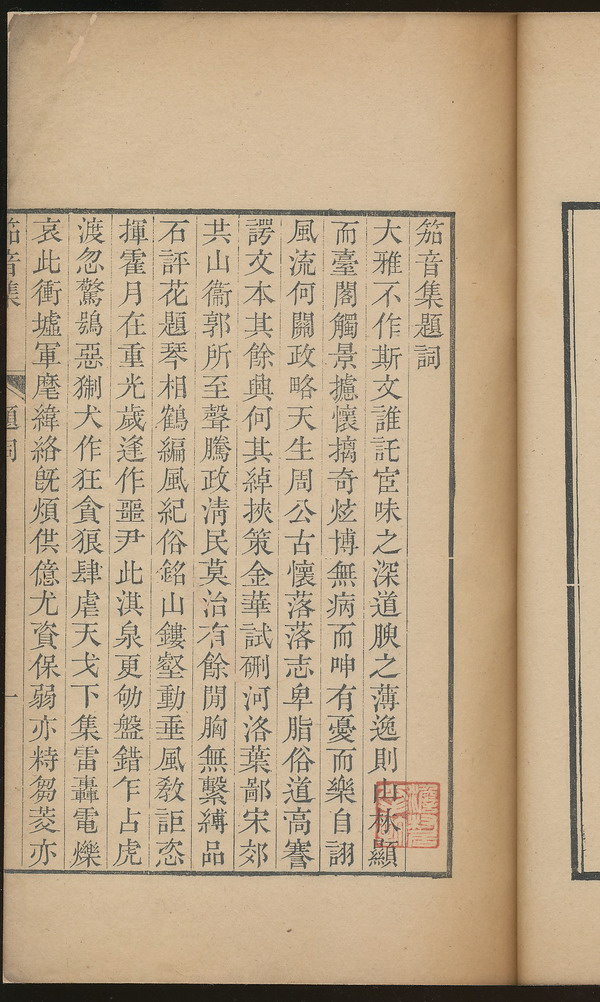 笳音集題詞
大雅不作斯文誰託宦味之深道腴之薄逸則山林顯
而臺閣觸景攄懷摛奇炫博無病而呻有憂而樂自詡
風流何關政略天生周公古懷落落志卑脂俗道高謇
諤文本其餘興何其綽挾策金華試硎河洛葉鄙宋郊
共山衞郭所至聲騰政清民莫治有餘閒胸無繫縛品
石評花題琴相鶴編風紀俗銘山鏤壑動垂風敎詎恣
揮霍月在重光歲逢作噩尹此淇泉更劬盤錯乍占虎
渡忽驚鴞惡猘犬作狂貪狼肆虐天戈下集雷轟電爍
哀此衝墟軍麾緯絡旣煩供億尤資保弱亦峙芻茭亦
笳音集
題詞
一